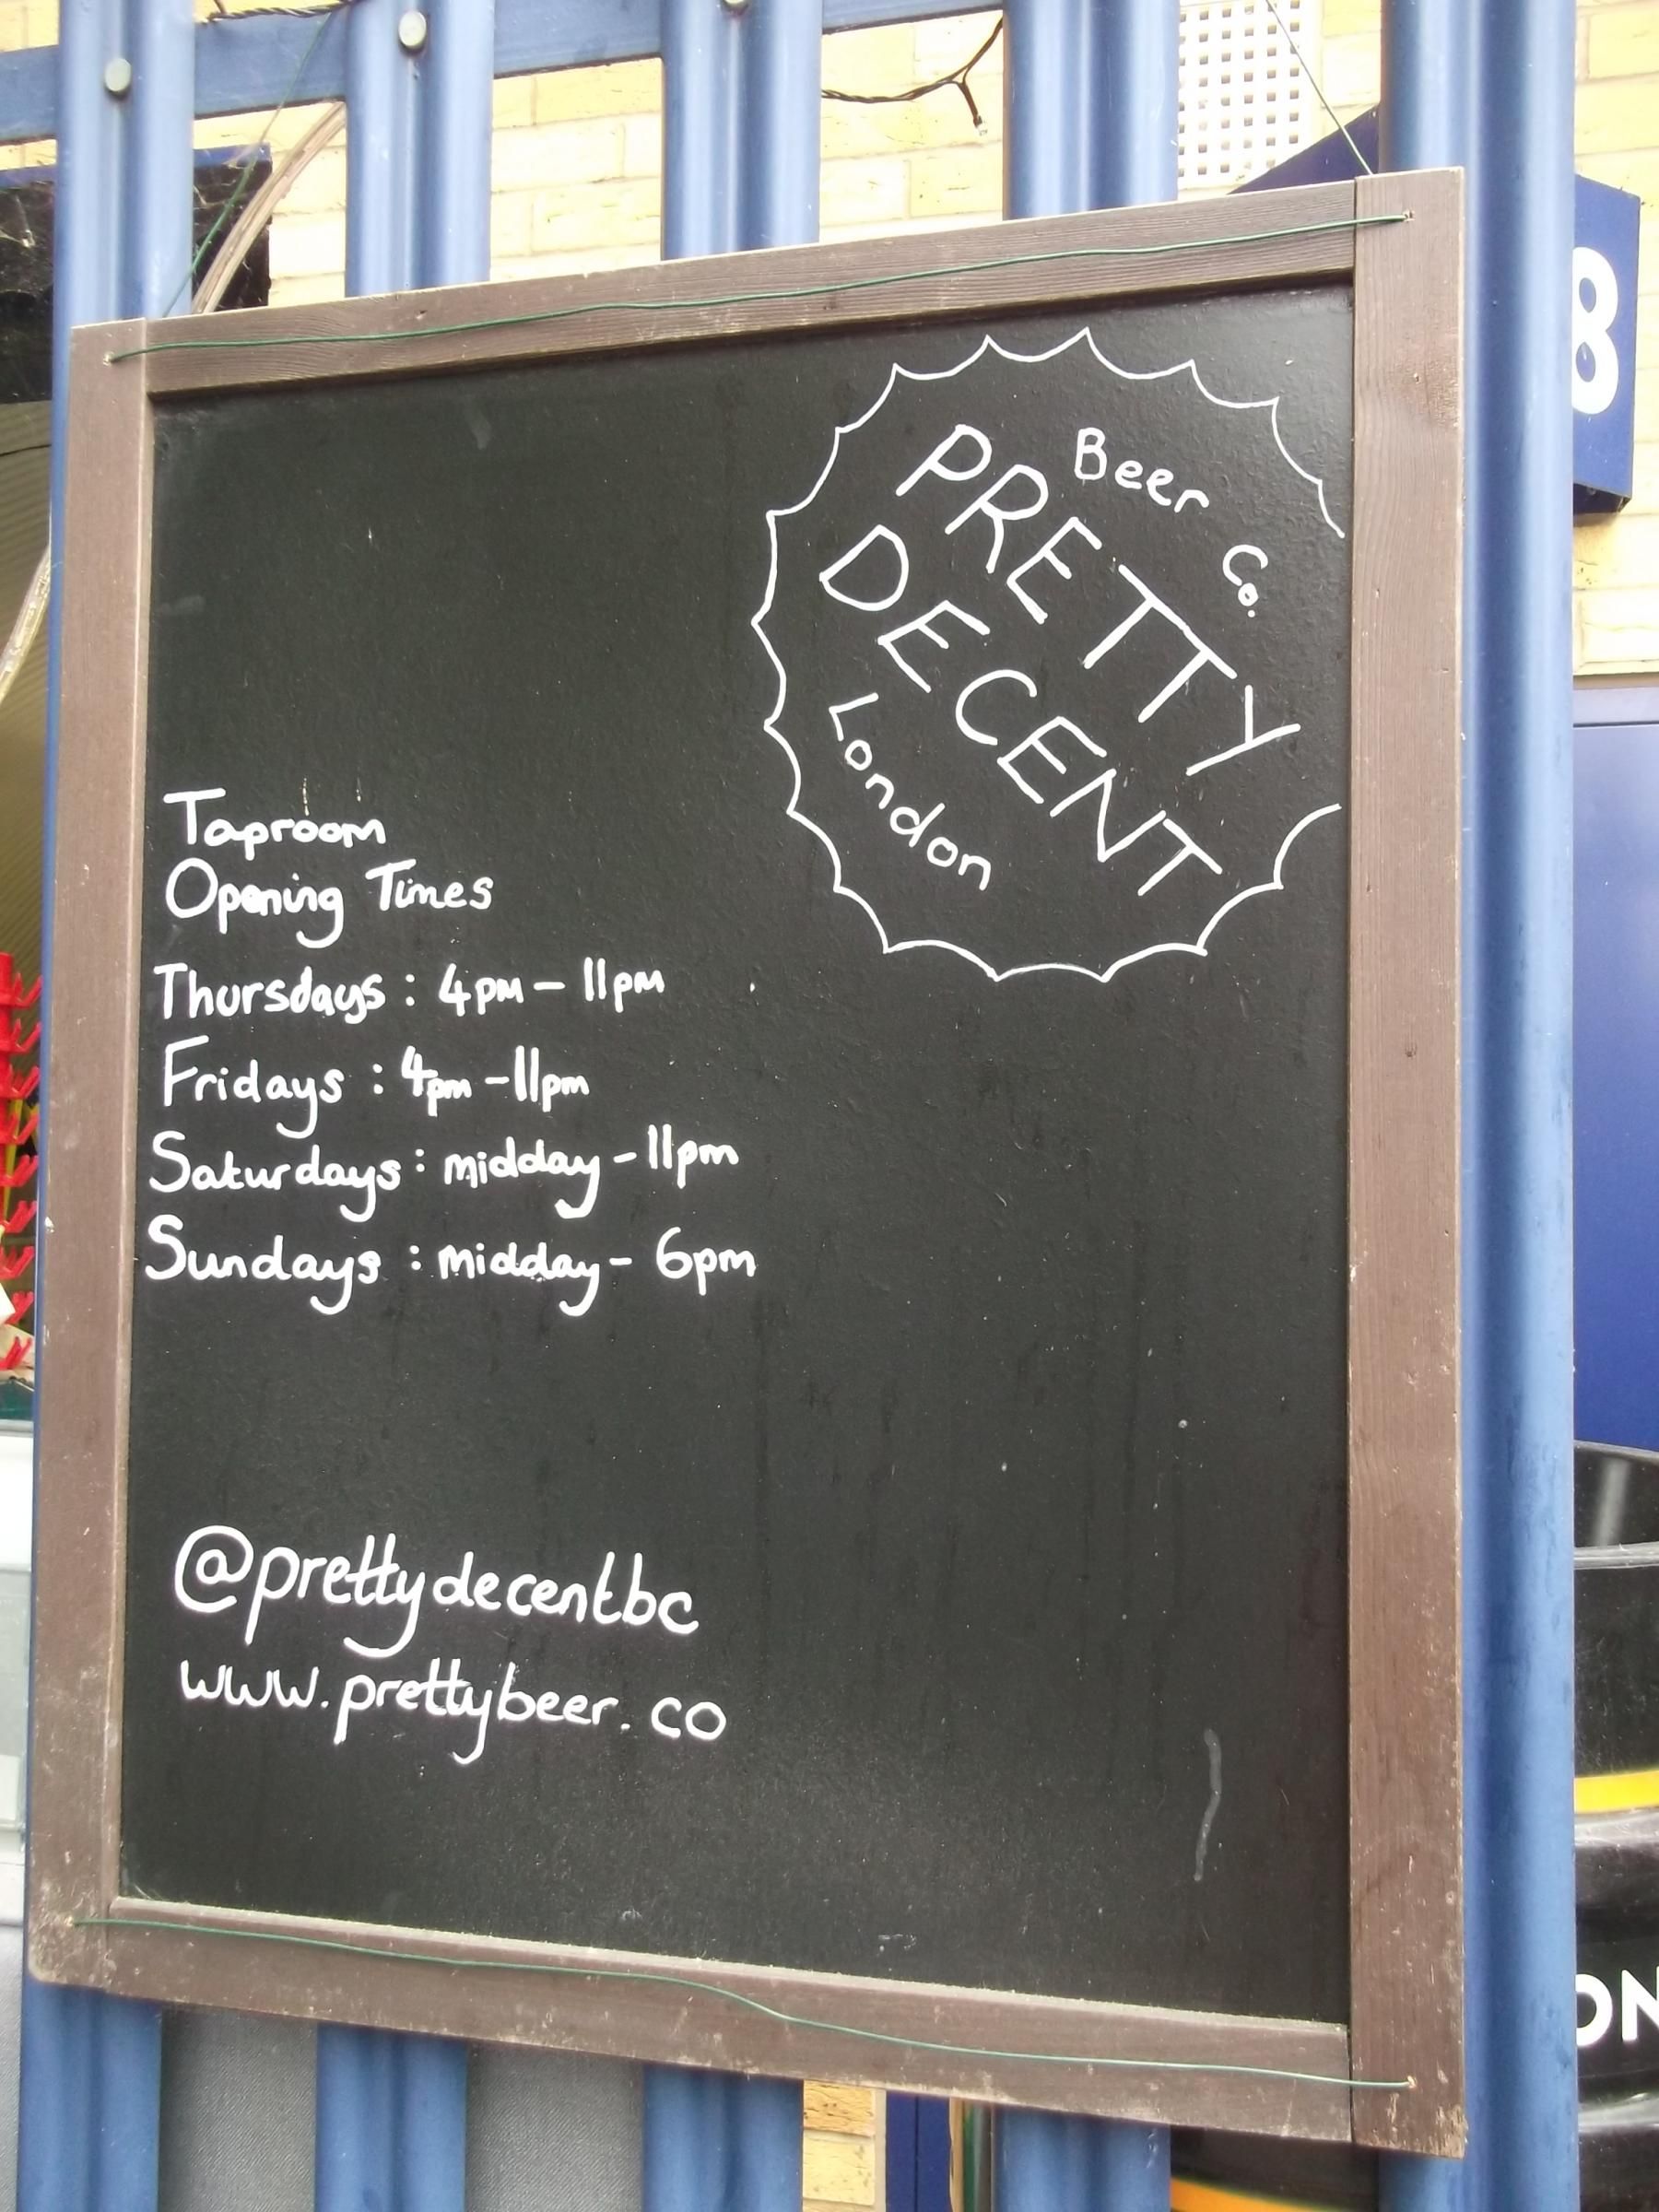 Beer Co.
PRETTY
DECENT
London
Taproom
Opening Times
Thursdays : 4pm - 11pm
Fridays : 4pm - 11pm
Saturdays : midday - 11pm
Sundays : midday - 6pm
@prettydecentbc
www.prettybeer.co
8
ON